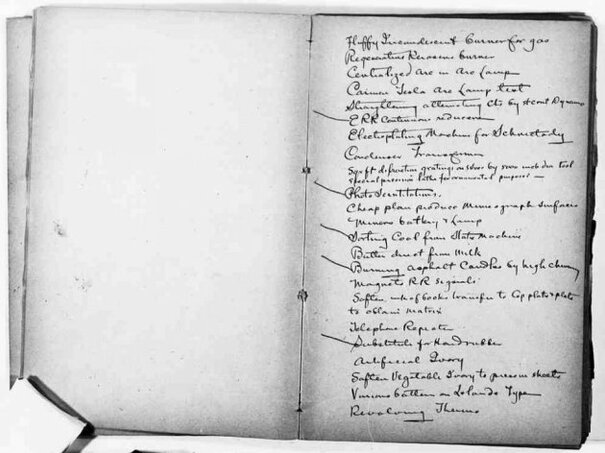 Fluffy Incandescent burner for gas
Regenerative Kerosene burner
Centralized Arc in Arc Lamp
Cairman Tesla Arc Lamp test
Strengthening alternating Cts by strent Dynamo
ERR Continuous reducer
Electroplating Machine for Schenectady
Condenser Transformer
Sqr ft difraction gratings on silver by
special precision lathe for ornamental purposes
Photo Scintilations
Cheap plan produce Mimeograph surfaces
Miners battery & Lamp
Sorting Coal from Slate Machine
Butter direct from Milk
Burning asphalt Candles by high chimney
Magneto RR Signals
Soften ink of books transfer to Cop plate & plate
to obtain matrix
Telephone Repeater
Substitute for Hard rubber
Artificial Ivory
Soften Vegetable Ivory to press in sheets
Various batteries on Lalande Type
Revolving Thermo